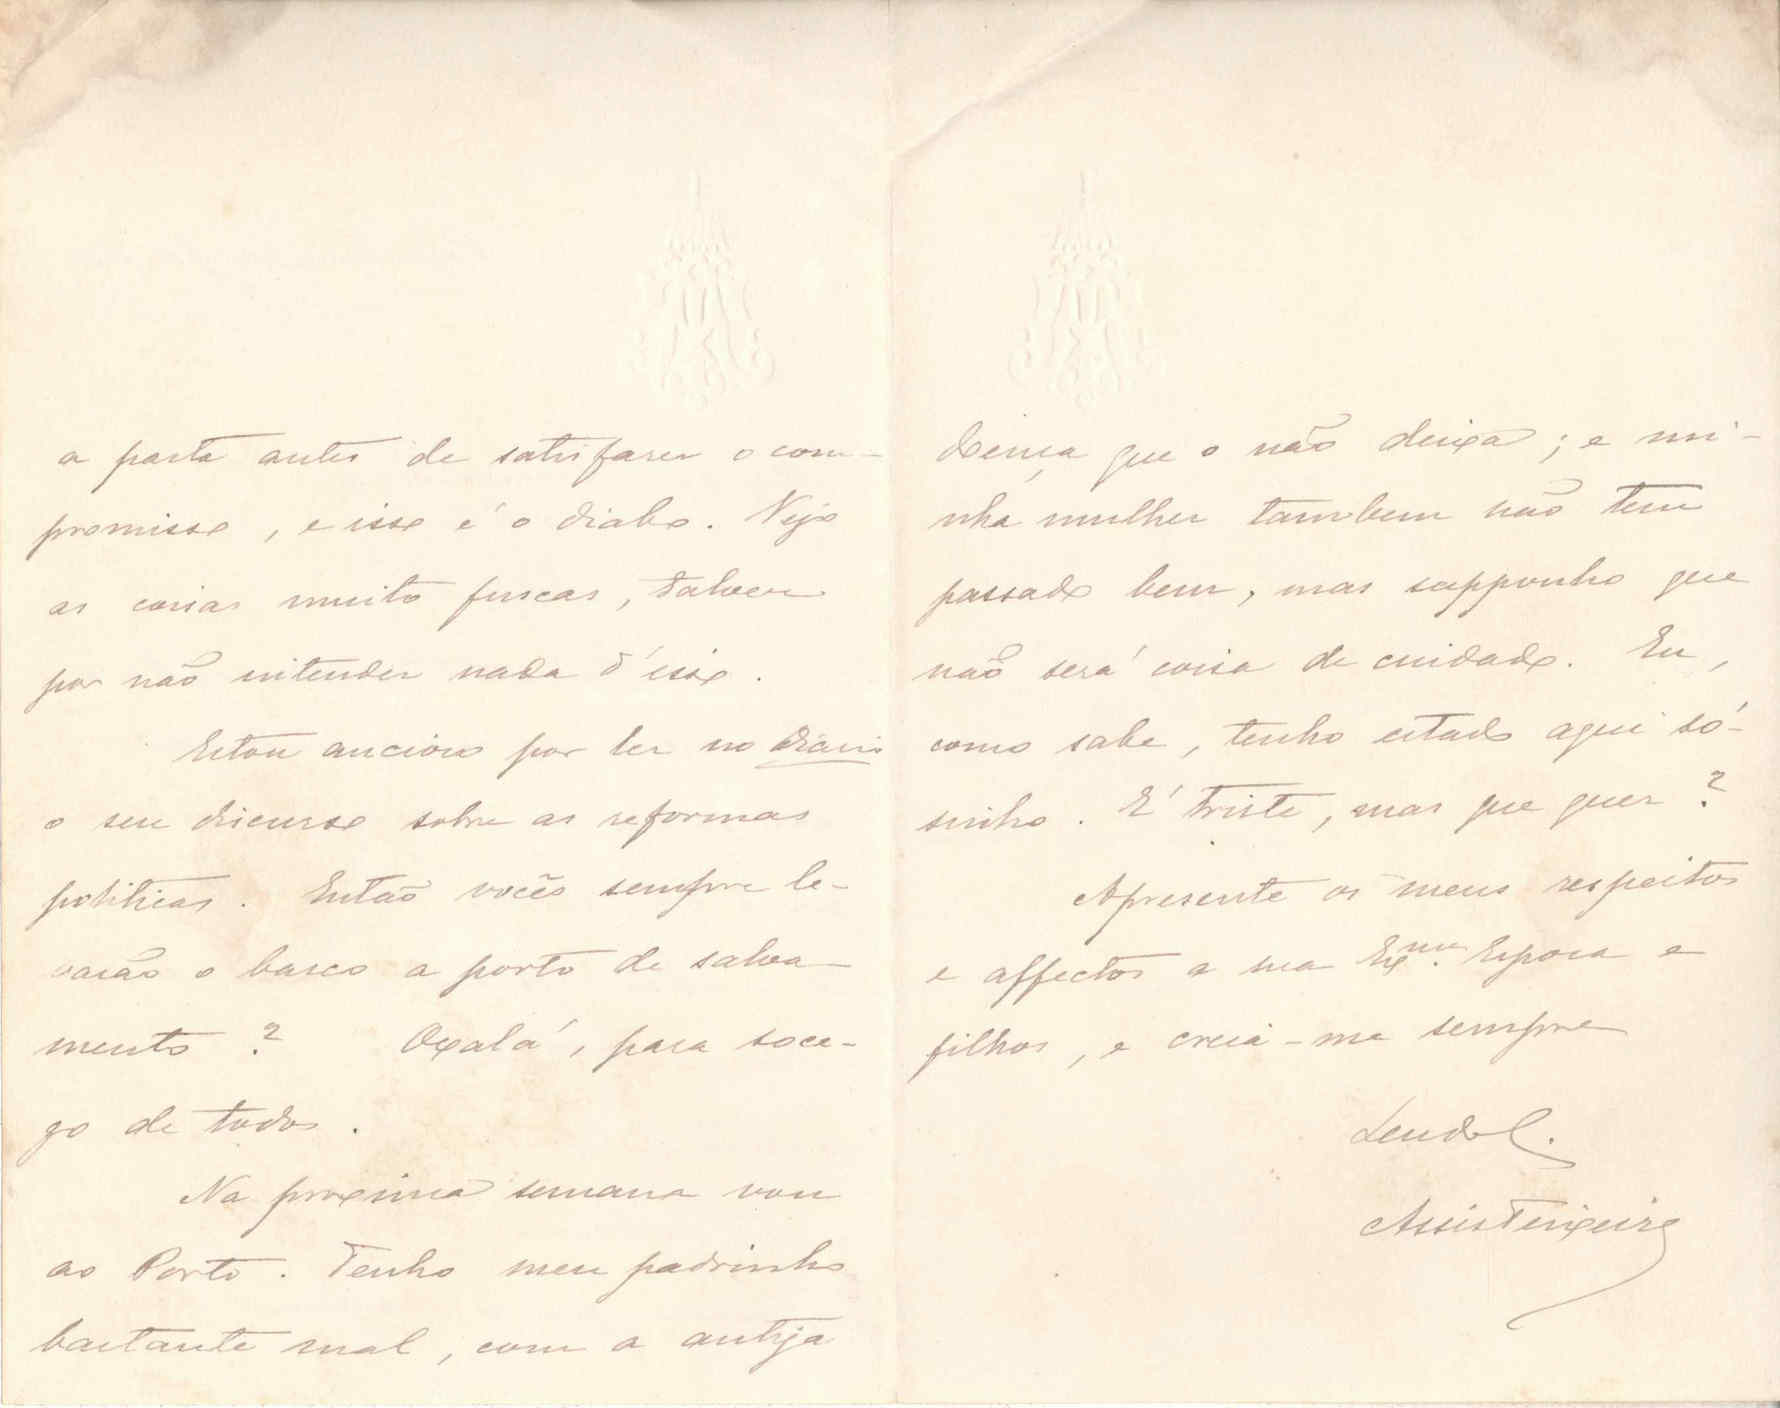 a pasta antes de satisfazer o com-
promisso, e isso é o diabo. Vejo
as coisas muito fuscas, talvez
por não intender nada d'isso.
Estou ancioso por ler no Diario
o seu discurso sobre as reformas
politicas. Então vocês sempre le-
varão o barco a porto de salva-
mento? Oxalá, para soce-
go de todos.
Na proxima semana vou
ao Porto. Tenho meu padrinho
bastante mal, com a antiga
doença que o não deixa; e mi-
nha mulher tambem não tem
passado bem, mas supponho que
não será coisa de cuidado. Eu,
como sabe, tenho estado aqui só-
sinho. É triste, mas que quer?
Apresente os meus respeitos
e affectos a sua Exma. Esposa e
filhos, e creia-me sempre
Assis Teixeira